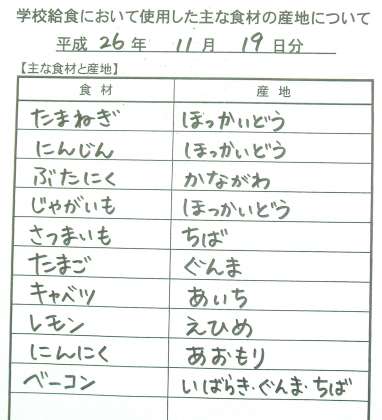 学校給食において使用した主な食材の産地について
平成 26 年 11 月 19 日分
【主な食材と産地】
食材 産地
たまねぎ ほっかいどう
にんじん ほっかいどう
ぶたにく かながわ
じゃがいも ほっかいどう
さつまいも ちば
たまご ぐんま
キャベツ あいち
レモン えひめ
にんにく あおもり
ベーコン いばらき・ぐんま・ちば